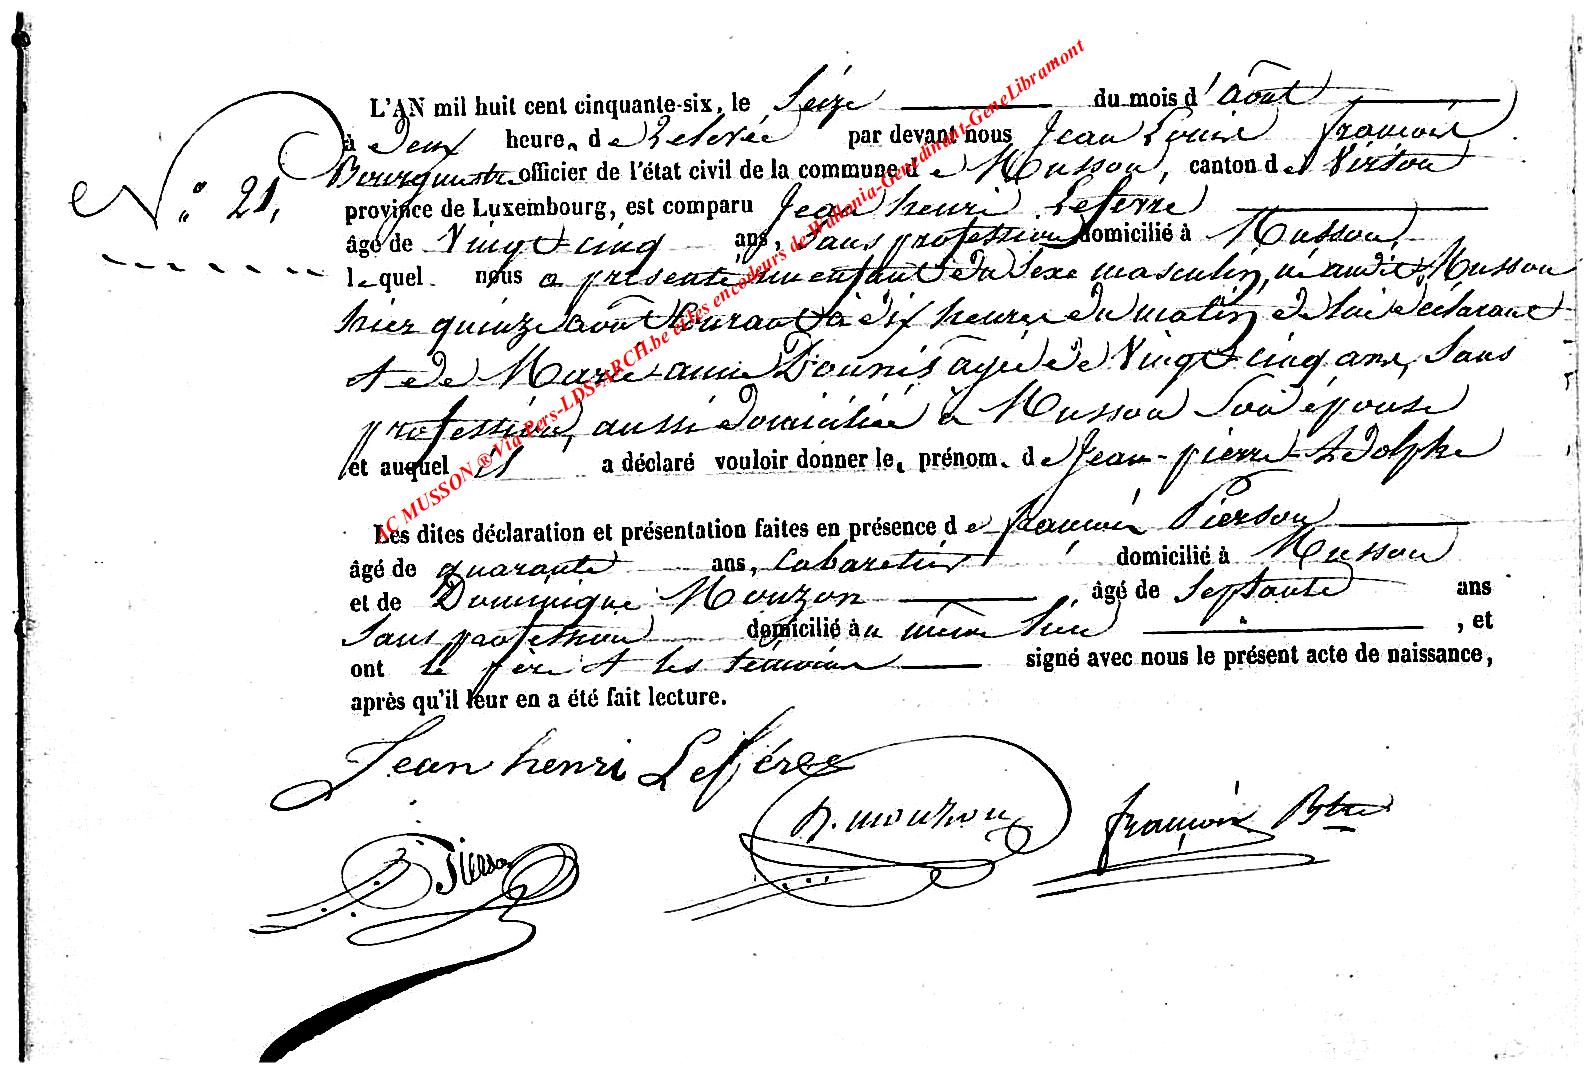 L'AN mil huit cent cinquante-six, le Seize du mois d'août
à deux heures de Relevée par devant nous Jean Louis françois
Bourgmestre officier de l'état civil de la commune de Musson, canton de Virton
N.° 21,
province de Luxembourg, est comparu Jean henri Lefevre
âgé de Vingt cinq ans, sans profession domicilié à Musson,
lequel nous a présenté un enfant du sexe masculin, né audit Musson
hier quinze août Courant à dix heures du matin de lui déclarant
et de Marie anne Dounis agée de Vingt cinq ans, Sans
profession, aussi domiciliée à Musson Son épouse
et auquel il a déclaré vouloir donner les prénoms de Jean-pierre Adolphe
Les dites déclaration et présentation faites en présence de françois Pierson
âgé de quarante ans, Cabaretier domicilié à Musson
et de Dominique Mouzon âgé de Septante ans
Sans profession domicilié au même lieu, et
ont le père et les témoins signé avec nous le présent acte de naissance,
après qu'il leur en a été fait lecture.
Jean henri Lefévre
D. mouzon françois Btre
Pierson
AC MUSSON ® Via Pers-LDS-ARCH.be et les encodeurs de Wallonia-Genedinant-GeneLibramont